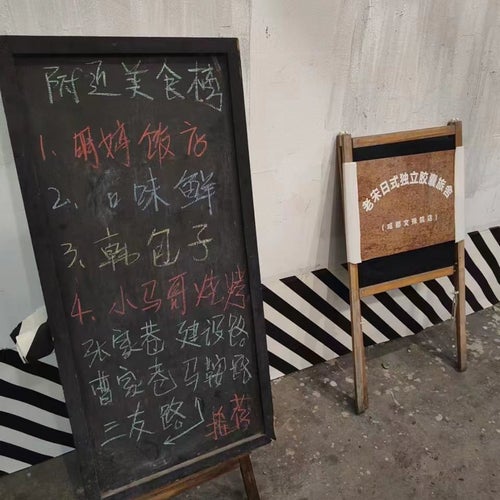 附近美食榜
1、明婷饭店
2、古味鲜
3、韩包子
4、小马哥烧烤
张家巷 建设路
曹家巷 马鞍路
三友路 推荐
老宋日式独立胶囊旅舍
(成都文殊院店)